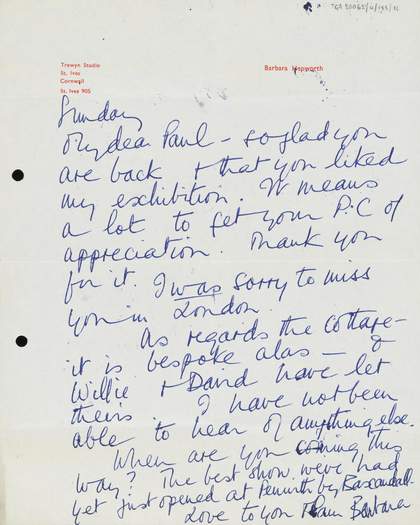 TGA 20065/4/195/11
Trewyn Studio
St. Ives
Cornwall
St. Ives 905
Barbara Hepworth
Sunday
My dear Paul – so glad you
are back & that you liked
my exhibition. It means
a lot to get your P.C of
appreciation. Thank you
for it. I was sorry to miss
you in London.
As regards the cottage –
it is bespoke alas – &
Willie & David have let
theirs. I have not been
able to hear of anything else.
When are you coming this
way? The best show we've had
yet just opened at Penwith by
Love to you Barbara